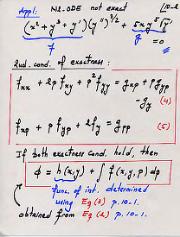 Appl: N2-ODE not exact 10-2
(x² + y³ + y')(y'')^{3/2} + 5xy² √y' = 0
f g
2nd. cond. of exactness:
f_xx + 2p f_xy + p² f_yy = g_xp + p g_yp - g_y (4)
f_xp + p f_yp + 2 f_y = g_pp (5)
If both exactness cond. hold, then
φ = h(x,y) + ∫ f(x,y,p) dp
func of int. determined
using Eq (3) p. 10-1.
obtained from Eq (2) p. 10-1.